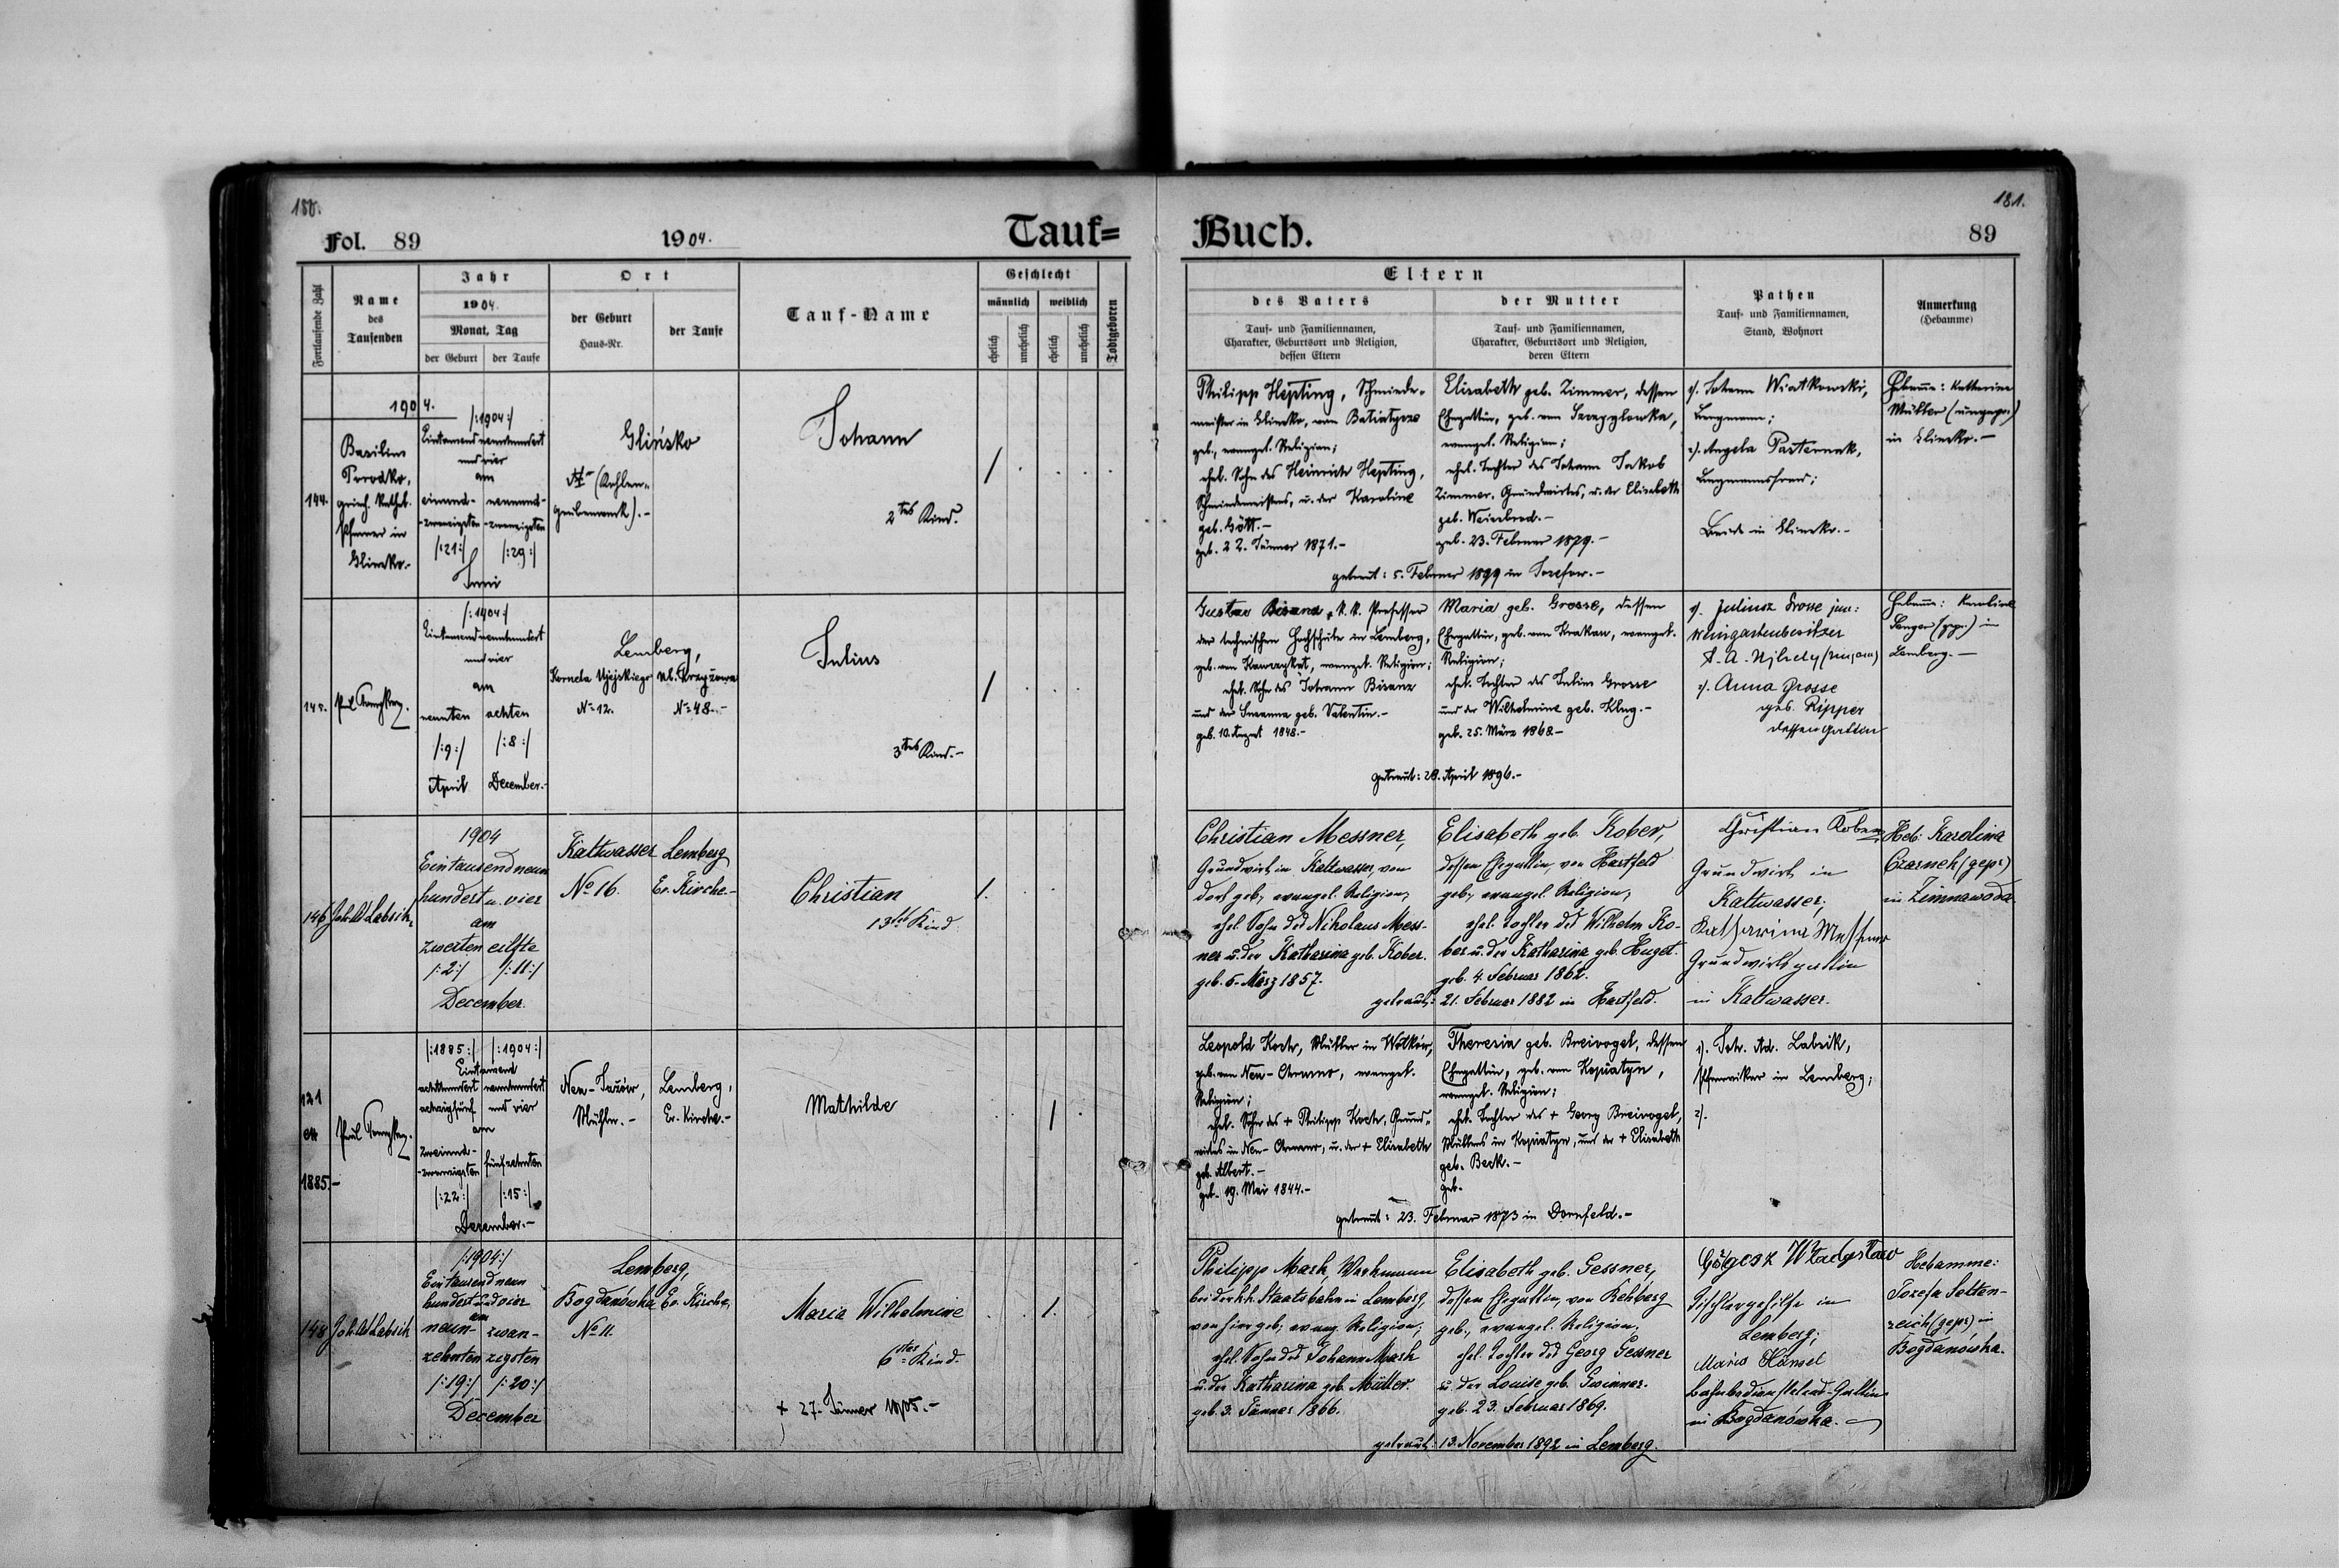 180.
Fol. 89
1904.
Tauf=
Fortlaufende Zahl
Name
des
Taufenden
Jahr
1904.
Monat, Tag
der Geburt
der Taufe
Ort
der Geburt
Haus-Nr.
der Taufe
Tauf-Name
Geschlecht
männlich
weiblich
ehelich
unehelich
ehelich
unehelich
Todtgeboren
1904.
144.
Basilius
griech. kathol.
Pfarrer in
Glinsko.-
/:1904:/
Eintausendneunhundert
und vier
am
einund-
zwanzigsten
neunund-
zwanzigsten
/:21:/ /:29:/
Juni
Glińsko
(Kohlen-
grubenwerk).-
Johann
2tes Kind.
/
145.
/:1904:/
Eintausendneunhundert
und vier
am
neunten achten
/:9:/ /:8:/
April December.-
Lemberg,
Kornela Ujejskiego ul. Krzyżowa
No 12. No 48.-
Julius
3tes Kind.-
/
146
Joh. Ad. Labsik
1904
Eintausendneun
hundert u. vier
am
zweiten eilfte
/:2:/ /:11:/
December.
Kaltwasser Lemberg
No 16. Ev. Kirche.-
Christian
13tes Kind.
/.
121
ex
1885.-
/:1885:/ /:1904:/
Eintausend
achthundert neunhundert
achzigfünf und vier
am
zweiund-
zwanzigsten
fünfzehnten
/:22:/ /:15:/
Dezember.-
Neu-Jażów, Lemberg,
Mühle.- Ev. Kirche.-
Mathilde
/
148
Joh. Ad. Labsik
/:1904:/
Eintausendneun
hundert und vier
am
neun- zwan-
zehnten zigsten
/:19:/ /:20:/
December
Lemberg,
Bogdanówka Ev. Kirche,
No 11.
Maria Wilhelmine
6tes Kind.
+ 27. Jänner 1905.-
/.
181.
Buch.
89
Eltern
des Vaters
Tauf- und Familiennamen,
Charakter, Geburtsort und Religion,
dessen Eltern
der Mutter
Tauf- und Familiennamen,
Charakter, Geburtsort und Religion,
deren Eltern
Pathen
Tauf- und Familiennamen,
Stand, Wohnort
Anmerkung
(Hebamme)
Philipp Hepting, Schmiede-
meister in Glinsko, von Batiatycze
geb., evangel. Religion;
ehel. Sohn des Heinrich Hepting,
Schmiedemeisters, u. der Karoline
geb. Gött.-
geb. 22. Jänner 1871.-
Elisabeth geb. Zimmer, dessen
Ehegattin, geb. von
evangel. Religion;
ehel. Tochter des Johann Jakob
Zimmer, Grundwirtes, u. der Elisabeth
geb. Weissbrod.-
geb. 23. Februar 1879.-
getraut: 5. Februar 1899 in Josefow.-
1/. Johann Wiatkowski,
Bergmann;
2/. Angela Pasternak,
Bergmannsfrau;
Beide in Glinsko.-
Hebamme: Katharina
Müller (ungepr.)
in Glinsko.-
Gustav Bisanz, k. k. Professor
der technischen Hochschule in Lemberg,
geb. von evangel. Religion;
ehel. Sohn des Johann Bisanz
und der Susanna geb. Valentin.-
geb. 10. August 1848.-
Maria geb. Grosse, dessen
Ehegattin, geb. von Krakau, evangel.
Religion;
ehel. Tochter des Julius Grosse
und der Wilhelmine geb. Klug.-
geb. 25. März 1868.-
getraut: 28. April 1896.-
1/. Juliusz Grosse jun:
Weingartenbesitzer
2/. Anna Grosse
geb. Ripper
dessen Gattin
Hebamme: Karoline
Langer (gepr.) in
Lemberg.-
Christian Messner,
Grundwirt in Kaltwasser, von
dort geb., evangel. Religion,
ehel. Sohn des Nikolaus Mess-
ner u. der Katharina geb. Kober.
geb. 6. März 1857.
Elisabeth geb. Kober,
dessen Ehegattin, von Hartfeld
geb., evangel. Religion,
ehel. Tochter des Wilhelm Ko-
ber u. der Katharina geb. Huget.
geb. 4. Februar 1862.
getraut: 21. Februar 1882 in Hartfeld.
Christian Kober,
Grundwirt in
Kaltwasser;
Katharina Messner
Grundwirtsgattin
in Kaltwasser.
Heb: Karolina
Czarneh (gepr.)
in Zimnawoda
Leopold Koch, Müller in Wołków,
geb. von Neu-Chrusno, evangel.
Religion;
ehel. Sohn des + Philipp Koch, Grund-
wirtes in Neu-Chrusno, u. der + Elisabeth
geb. Albert.-
geb. 19. Mai 1844.-
Theresia geb. Breivogel, dessen
Ehegattin, geb. von Kopiatyn,
evangel. Religion;
ehel. Tochter des + Georg Breivogel,
Müllers in Kopiatyn, und der + Elisabeth
geb. Beck.-
geb.
getraut: 23. Februar 1873 in Dornfeld.-
1/. Joh. Ad. Labsik,
Pfarrvikar in Lemberg;
2/.
Philipp Mark, Werkmann
bei der k.k. Staatsbahn in Lemberg,
von hier geb., evang. Religion;
ehel. Sohn des Johann Mark
u. der Katharina geb. Müller.
geb. 3. Jänner 1866.
Elisabeth geb. Gessner,
dessen Ehegattin, von Rehberg
geb., evangel. Religion,
ehel. Tochter des Georg Gessner
u. der Louise geb. Gwinner.
geb. 23. Februar 1869.
getraut: 13. November 1892 in Lemberg.
Władysław
Tischlergehilfe in
Lemberg;
Maria Hänsel
Bahnbediensteten-Gattin
in Bogdanówka.
Hebamme:
Josefa Selten-
reich (gepr.) in
Bogdanówka.